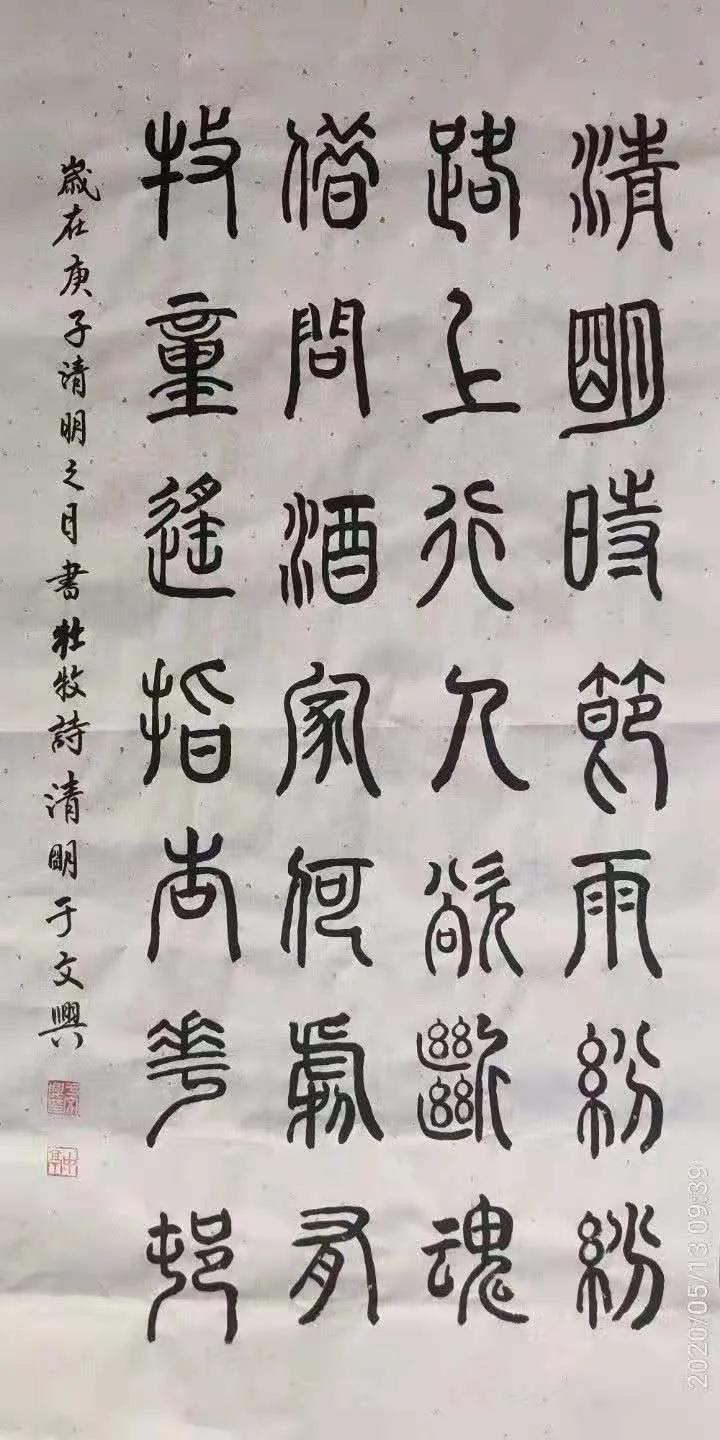 清朙時節雨紛紛
路上行人欲斷魂
借問酒家何處有
牧童遥指杏花邨
歲在庚子清明之日書杜牧詩清明于文興
2020/05/13 09:39